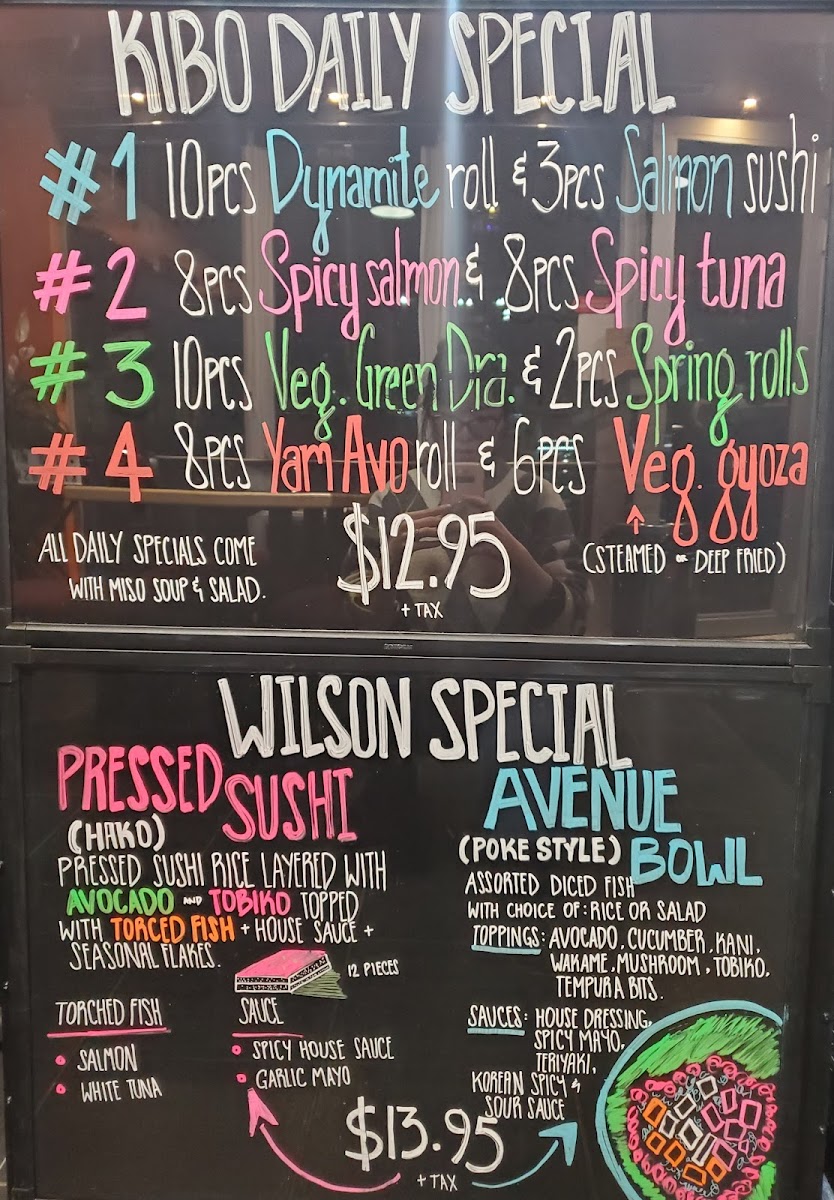 KIBO DAILY SPECIAL
#1 10PCS Dynamite roll & 3PCS Salmon sushi
#2 8PCS Spicy salmon & 8PCS Spicy tuna
#3 10PCS Veg. Green Dra. & 2PCS Spring rolls
#4 8PCS Yam Avo roll & 6PCS Veg. gyoza
(STEAMED OR DEEP FRIED)
ALL DAILY SPECIALS COME
WITH MISO SOUP & SALAD.
$12.95
+ TAX
WILSON SPECIAL
PRESSED
SUSHI
(HAKO)
PRESSED SUSHI RICE LAYERED WITH
AVOCADO AND TOBIKO TOPPED
WITH TORCED FISH + HOUSE SAUCE +
SEASONAL FLAKES.
12 PIECES
TORCHED FISH
• SALMON
• WHITE TUNA
SAUCE
• SPICY HOUSE SAUCE
• GARLIC MAYO
AVENUE
(POKE STYLE) BOWL
ASSORTED DICED FISH
WITH CHOICE OF: RICE OR SALAD
TOPPINGS: AVOCADO, CUCUMBER, KANI,
WAKAME, MUSHROOM, TOBIKO,
TEMPURA BITS.
SAUCES: HOUSE DRESSING,
SPICY MAYO,
TERIYAKI,
KOREAN SPICY &
SOUR SAUCE
$13.95
+ TAX